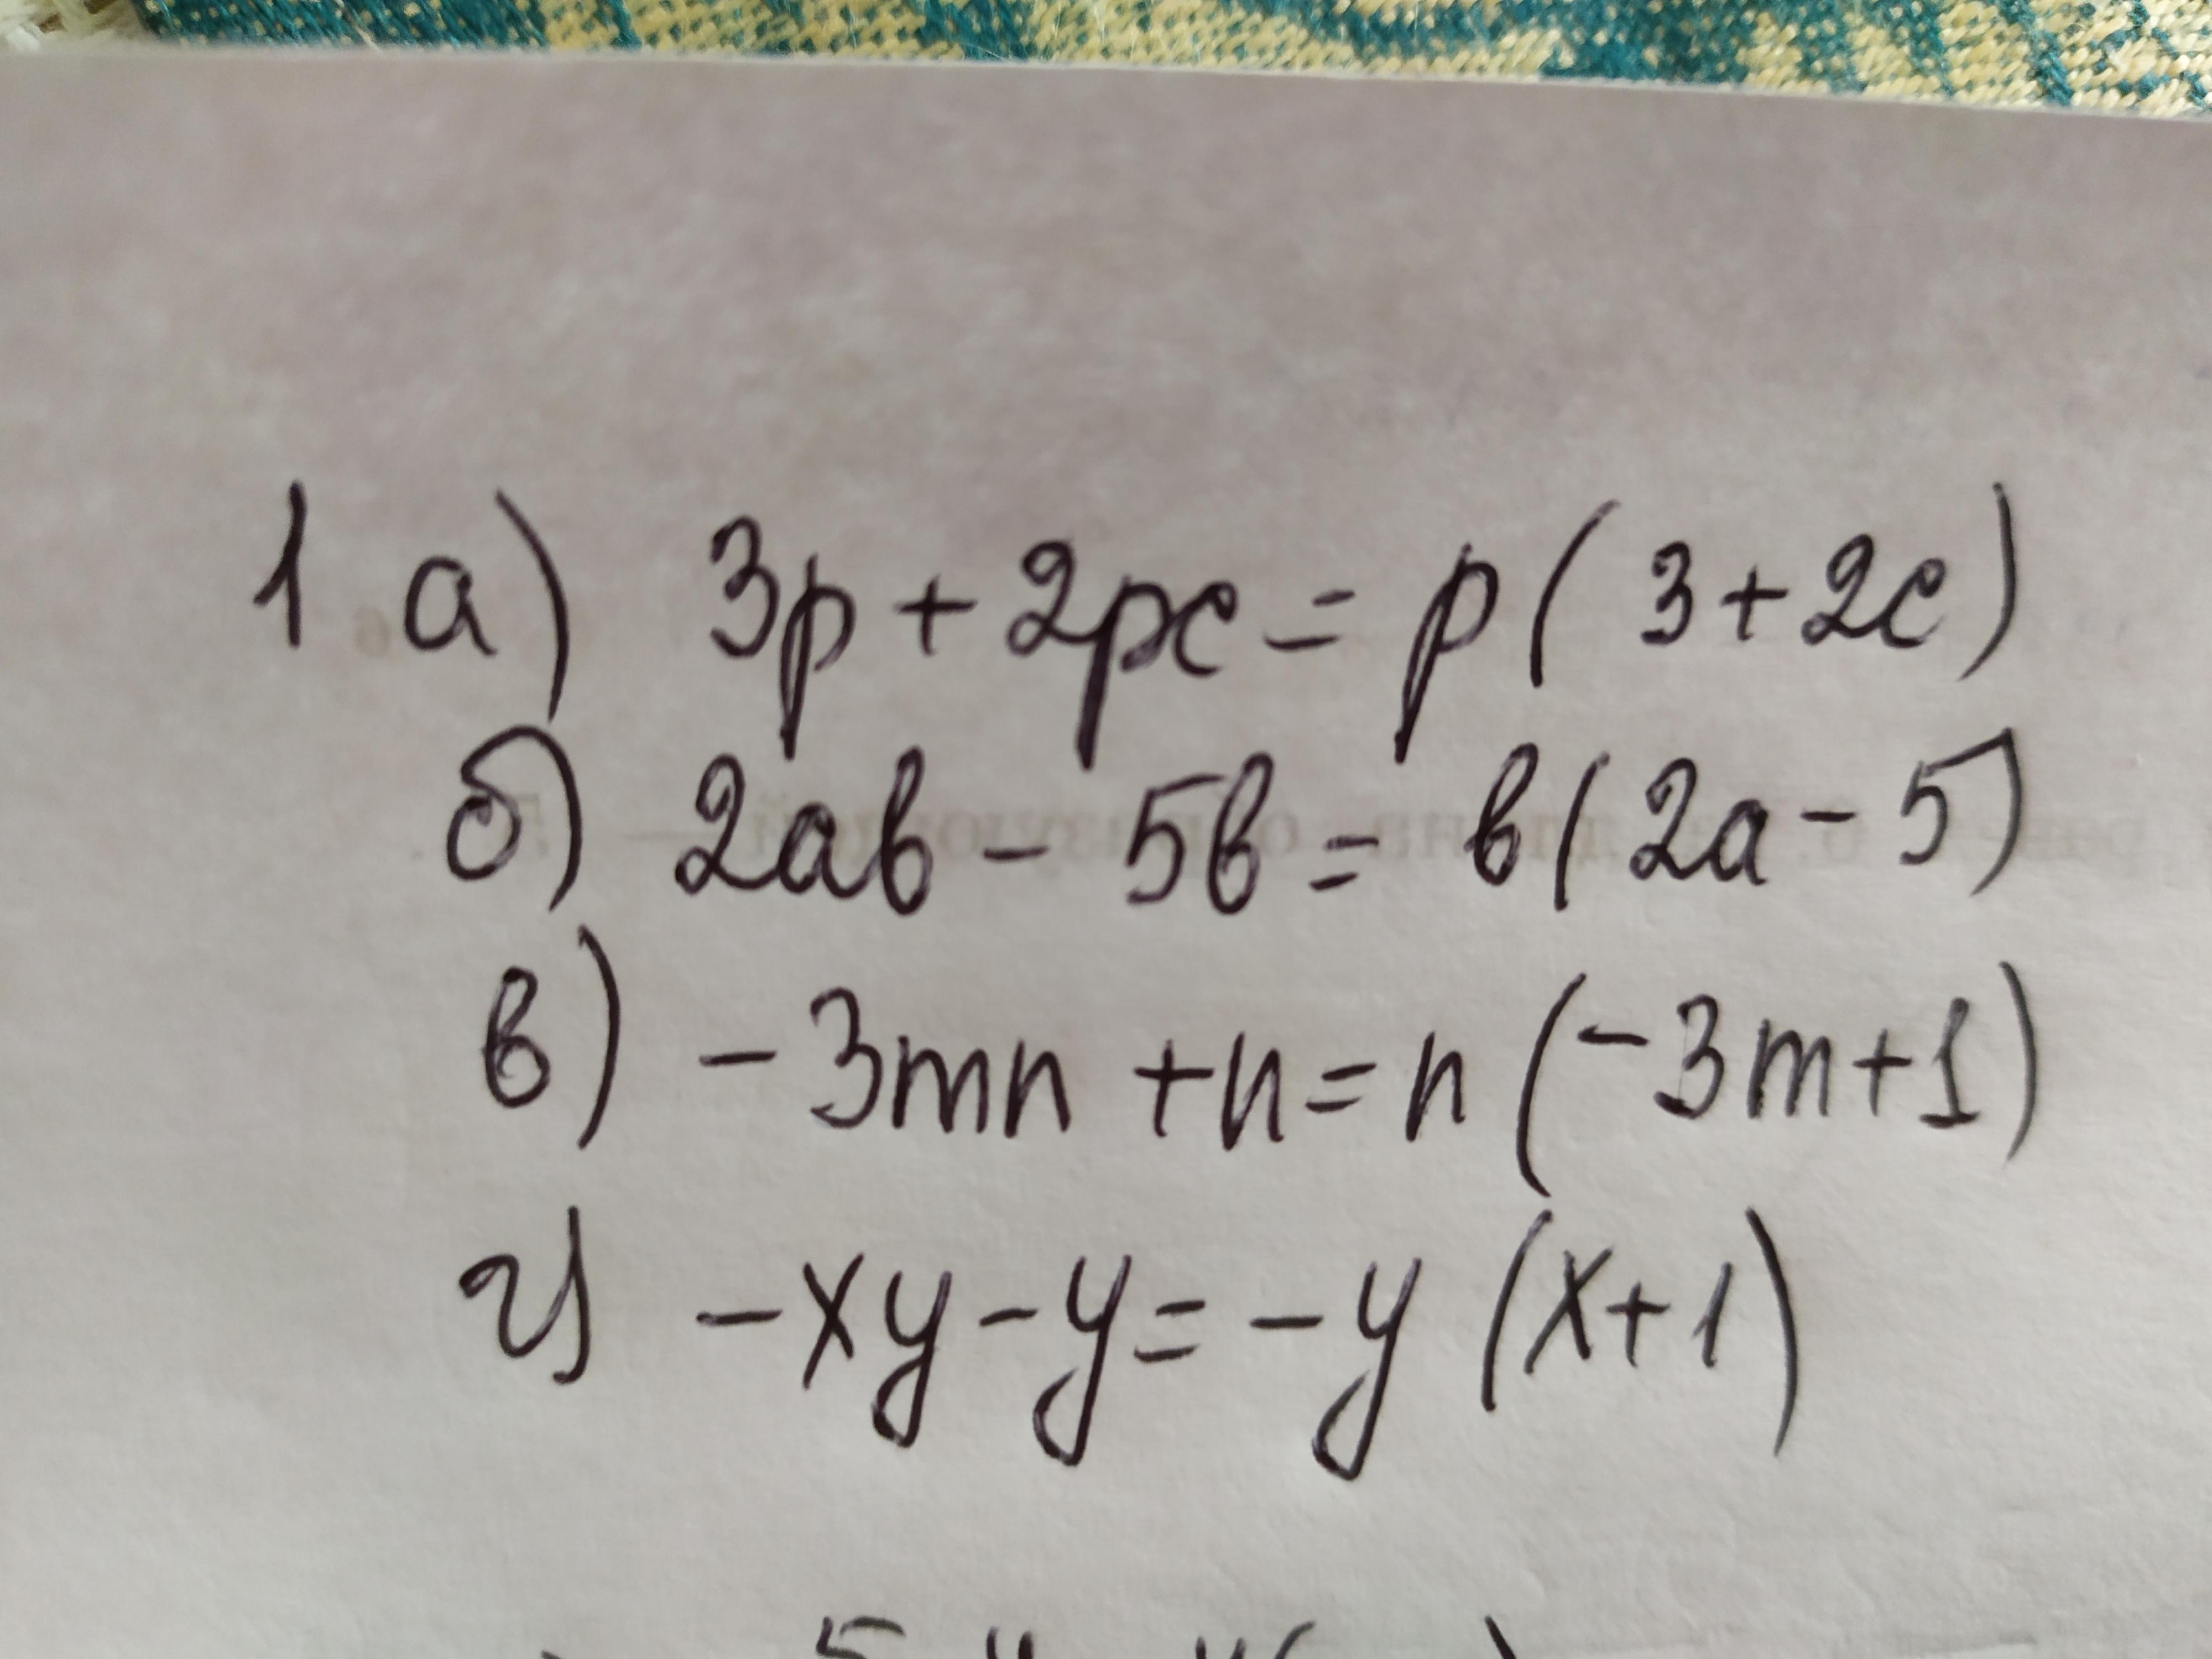 1 а) 3p + 2pc = p( 3+2c)
б) 2ав - 5в = в( 2а - 5)
в) - 3mn + n = n (-3m+1)
г) -xy - y = -y (x+1)